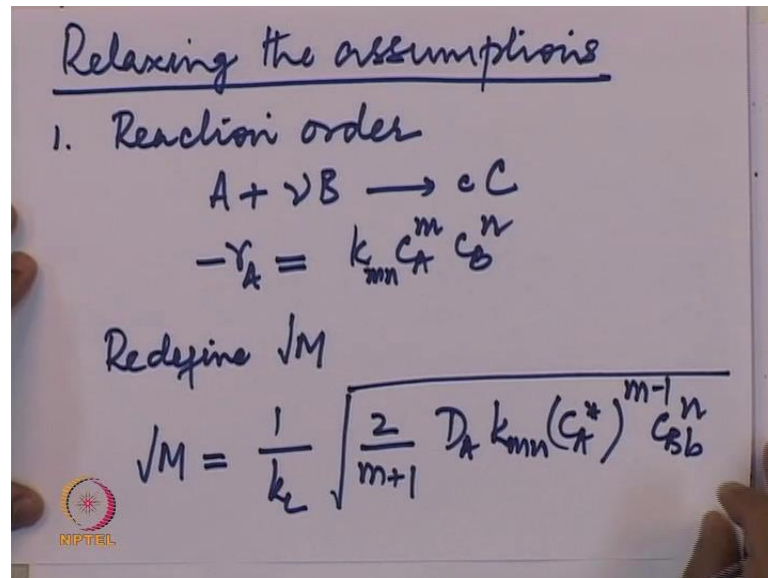 Relaxing the assumptions
1. Reaction order
A + νB → cC
-r_A = k_mn C_A^m C_B^n
Redefine √M
√M = 1/k_L √(2/(m+1) D_A k_mn (C_A*)^(m-1) C_Bb^n)
NPTEL